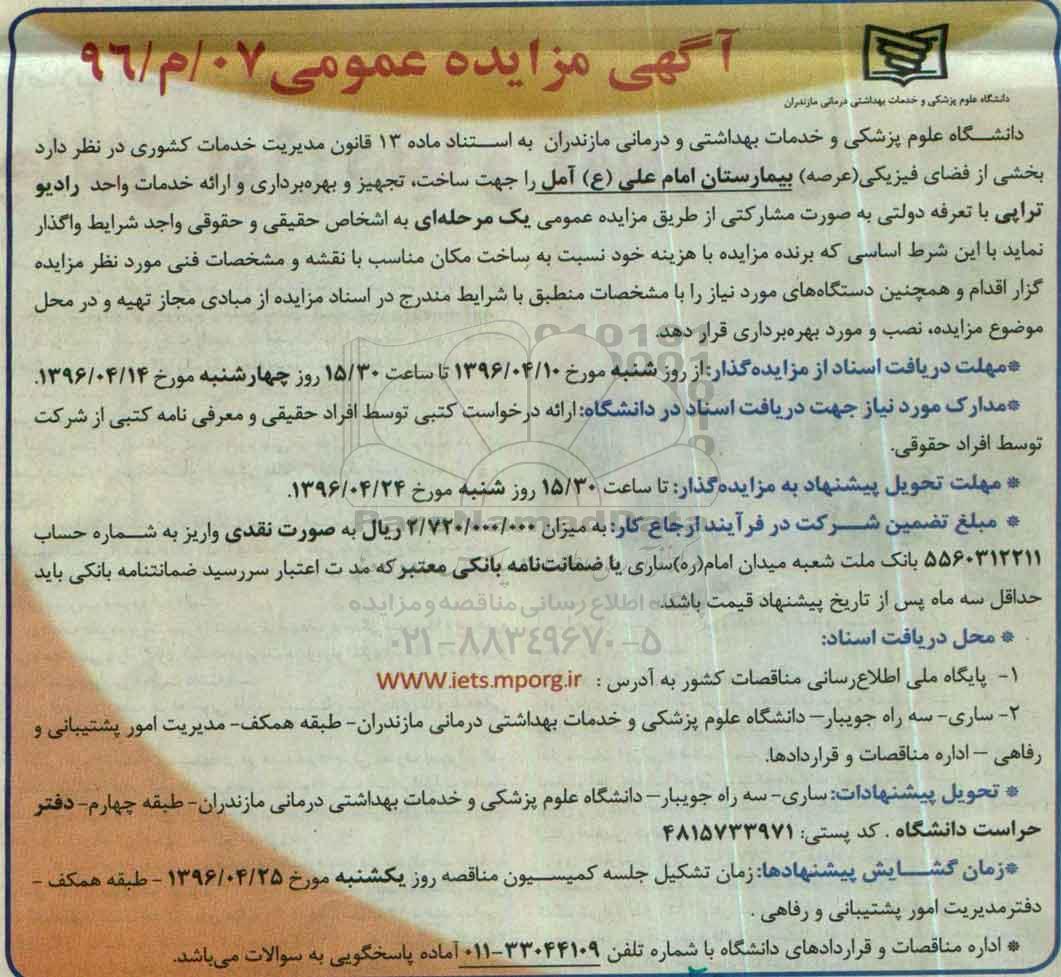 آگهی مزایده عمومی ۰۷/م/۹۶
دانشگاه علوم پزشکی و خدمات بهداشتی درمانی مازندران
دانشگاه علوم پزشکی و خدمات بهداشتی و درمانی مازندران به استناد ماده ۱۳ قانون مدیریت خدمات کشوری در نظر دارد
بخشی از فضای فیزیکی(عرصه) بیمارستان امام علی (ع) آمل را جهت ساخت، تجهیز و بهره‌برداری و ارائه خدمات واحد رادیو
تراپی با تعرفه دولتی به صورت مشارکتی از طریق مزایده عمومی یک مرحله‌ای به اشخاص حقیقی و حقوقی واجد شرایط واگذار
نماید با این شرط اساسی که برنده مزایده با هزینه خود نسبت به ساخت مکان مناسب با نقشه و مشخصات فنی مورد نظر مزایده
گزار اقدام و همچنین دستگاه‌های مورد نیاز را با مشخصات منطبق با شرایط مندرج در اسناد مزایده از مبادی مجاز تهیه و در محل
موضوع مزایده، نصب و مورد بهره‌برداری قرار دهد.
*مهلت دریافت اسناد از مزایده‌گذار: از روز شنبه مورخ ۱۳۹۶/۰۴/۱۰ تا ساعت ۱۵/۳۰ روز چهارشنبه مورخ ۱۳۹۶/۰۴/۱۴.
*مدارک مورد نیاز جهت دریافت اسناد در دانشگاه: ارائه درخواست کتبی توسط افراد حقیقی و معرفی نامه کتبی از شرکت
توسط افراد حقوقی.
* مهلت تحویل پیشنهاد به مزایده‌گذار: تا ساعت ۱۵/۳۰ روز شنبه مورخ ۱۳۹۶/۰۴/۲۴.
* مبلغ تضمین شرکت در فرآیند ارجاع کار: به میزان ۲/۷۲۰/۰۰۰/۰۰۰ ریال به صورت نقدی واریز به شماره حساب
۵۵۶۰۳۱۲۲۱۱ بانک ملت شعبه میدان امام(ره)ساری یا ضمانت‌نامه بانکی معتبر که مد ت اعتبار سررسید ضمانتنامه بانکی باید
حداقل سه ماه پس از تاریخ پیشنهاد قیمت باشد.
اطلاع رسانی مناقصه و مزایده
۰۲۱-۸۸۳۴۹۶۷۰-۵
* محل دریافت اسناد:
۱- پایگاه ملی اطلاع‌رسانی مناقصات کشور به آدرس : WWW.iets.mporg.ir
۲- ساری- سه راه جویبار– دانشگاه علوم پزشکی و خدمات بهداشتی درمانی مازندران- طبقه همکف- مدیریت امور پشتیبانی و
رفاهی – اداره مناقصات و قراردادها.
* تحویل پیشنهادات: ساری- سه راه جویبار– دانشگاه علوم پزشکی و خدمات بهداشتی درمانی مازندران- طبقه چهارم- دفتر
حراست دانشگاه . کد پستی: ۴۸۱۵۷۳۳۹۷۱
*زمان گشایش پیشنهادها: زمان تشکیل جلسه کمیسیون مناقصه روز یکشنبه مورخ ۱۳۹۶/۰۴/۲۵ - طبقه همکف -
دفترمدیریت امور پشتیبانی و رفاهی .
* اداره مناقصات و قراردادهای دانشگاه با شماره تلفن ۳۳۰۴۴۱۰۹-۰۱۱ آماده پاسخگویی به سوالات می‌باشد.